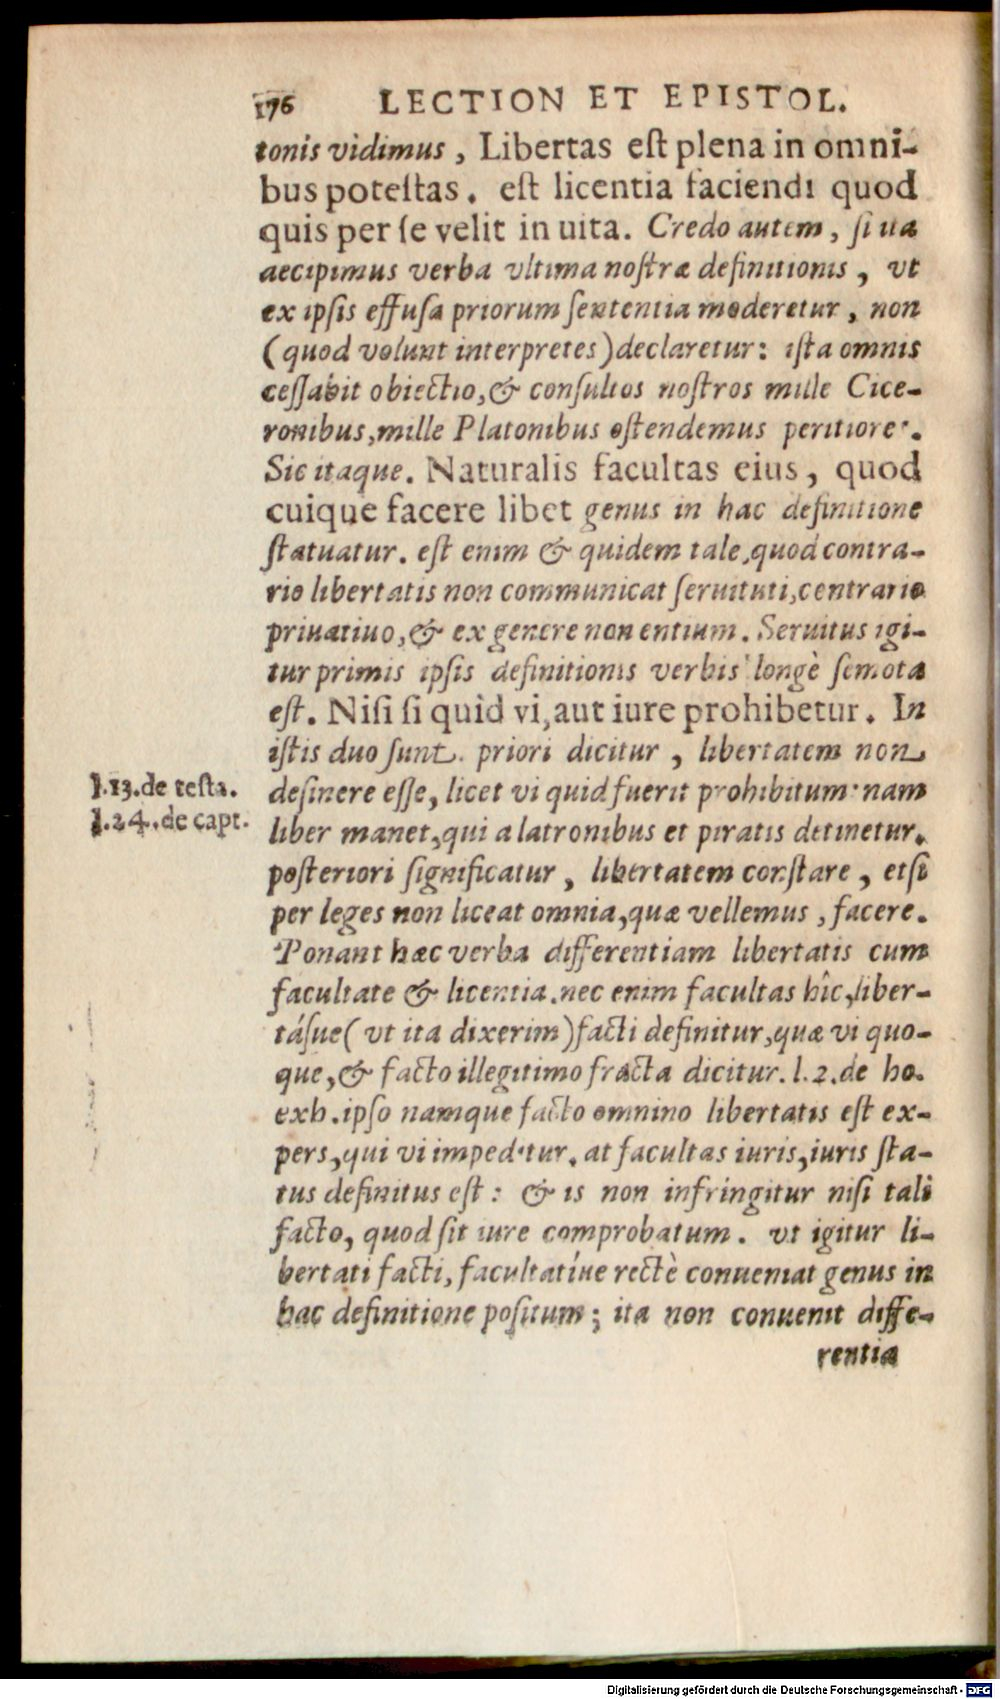 176 LECTION ET EPISTOL.
tonis vidimus, Libertas est plena in omni-
bus potestas. est licentia faciendi quod
quis per se velit in uita. Credo autem, si ita
aecipimus verba vltima nostræ definitionis, vt
ex ipsis effusa priorum sententia moderetur, non
(quod volunt interpretes) declaretur: ista omnis
cessabit obiectio, & consultos nostros mille Cice-
ronibus, mille Platonibus ostendemus peritiore.
Sic itaque. Naturalis facultas eius, quod
cuique facere libet genus in hac definitione
statuatur. est enim & quidem tale, quod contra-
rio libertatis non communicat seruituti, centrario
priuatiuo, & ex genere non entium. Seruitus igi-
tur primis ipsis definitionis verbis longè semota
est. Nisi si quid vi, aut iure prohibetur. In
istis duo sunt. priori dicitur, libertatem non
l.13. de testa.
desinere esse, licet vi quid fuerit prohibitum: nam
l.24. de capt.
liber manet, qui a latronibus et piratis detinetur.
posteriori significatur, libertatem constare, etsi
per leges non liceat omnia, quæ vellemus, facere.
Ponant hæc verba differentiam libertatis cum
facultate & licentia. nec enim facultas hîc, liber-
tásue (vt ita dixerim) facti definitur, quæ vi quo-
que, & facto illegitimo fracta dicitur. l.2. de ho.
exh. ipso namque facto omnino libertatis est ex-
pers, qui vi impeditur. at facultas iuris, iuris sta-
tus definitus est: & is non infringitur nisi tali
facto, quod sit iure comprobatum. vt igitur li-
bertati facti, facultatíue rectè conueniat genus in
hac definitione positum; ita non conuenit diffe-
rentia
Digitalisierung gefördert durch die Deutsche Forschungsgemeinschaft - DFG